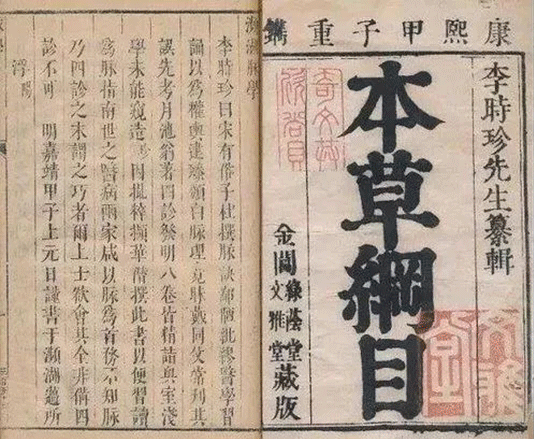 康熙甲子重鐫
李時珍先生纂輯
本草綱目
金閶
綠蔭堂
文雅堂
藏版
瀕湖脈學
李時珍曰宋有俗子杜撰脈訣鄙陋紕繆醫學習
誦以為權輿逮臻頒白脈理竟昧戴同父常刊其
誤先考月池翁著四診發明八卷皆精詣奧室淺
學未能窺造珍因撮粹擷華僭撰此書以便習讀
為脈指南世之醫病兩家咸以脈為首務不知脈
乃四診之末謂之巧者爾上士欲會其全非備四
診不可 明嘉靖甲子上元日謹書于瀕湖薖所
浮陽